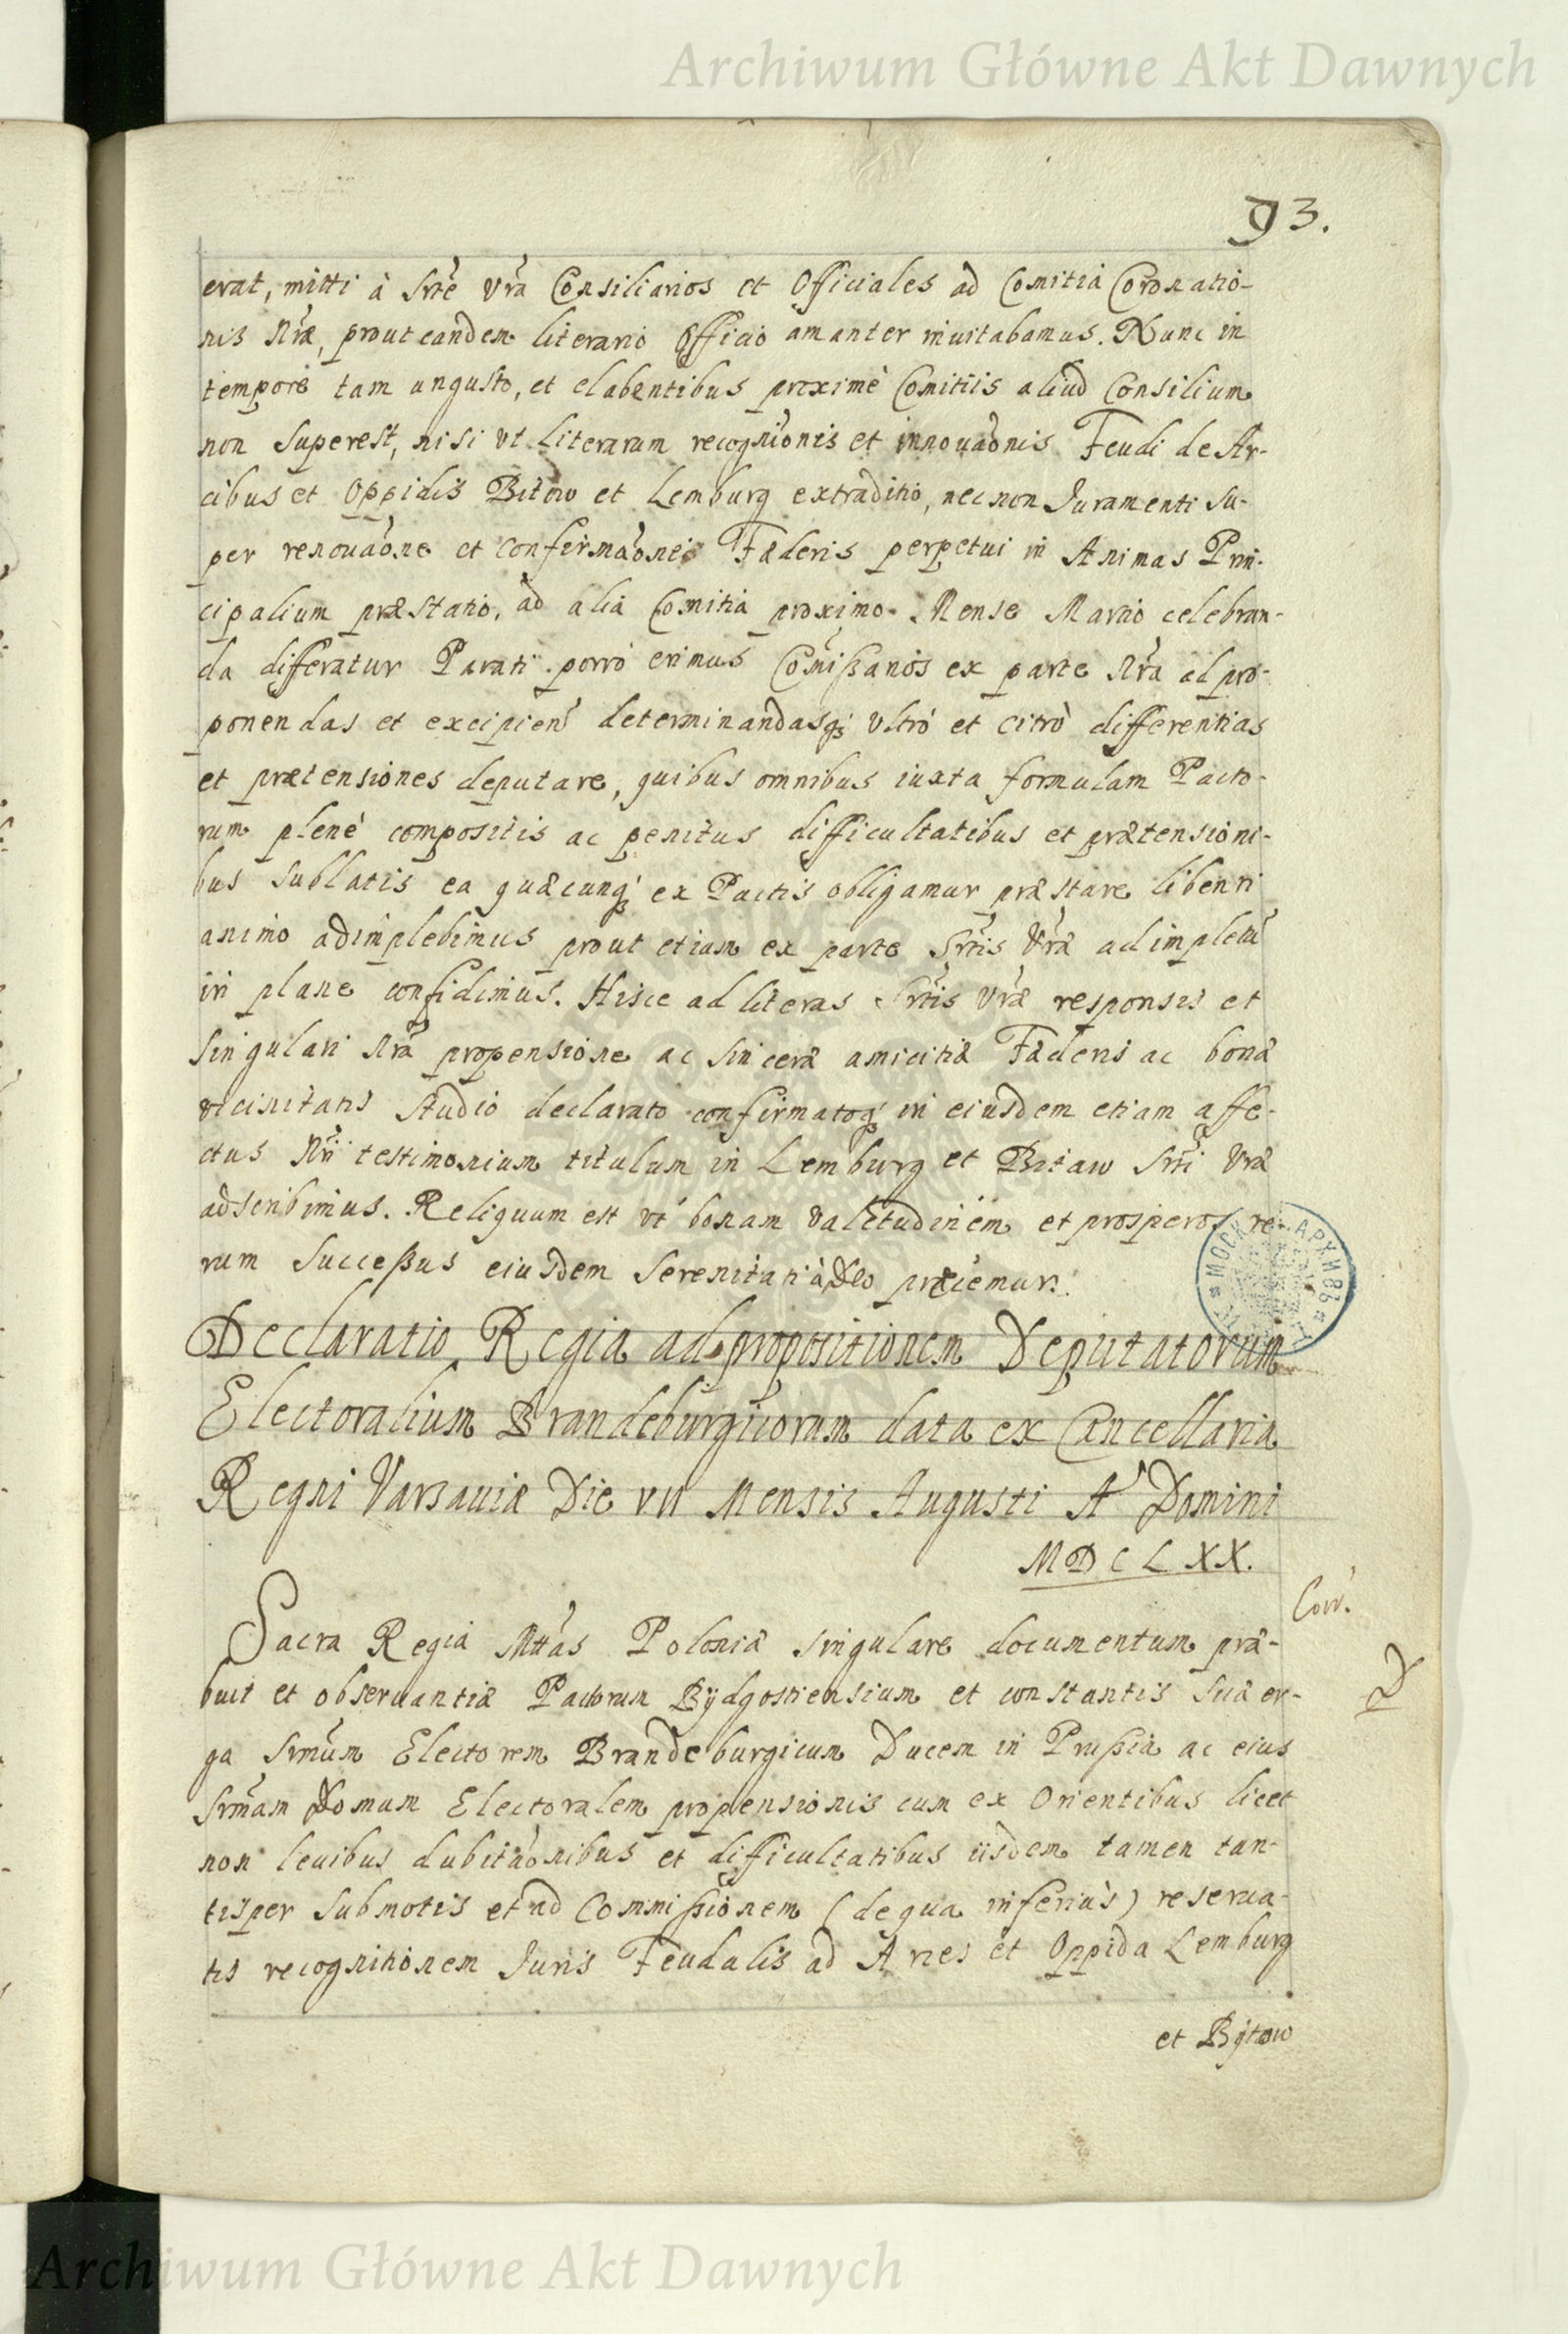 Archiwum Główne Akt Dawnych
93.
erat, mitti à Srte Vra Consiliarios et Officiales ad Comitia Coronatio-
nis Nræ, prout eandem literario Officio amanter inuitabamus. Nunc in
tempore tam angusto, et elabentibus proximè Comitiis aliud Consilium
non superest, nisi vt Literarum recognionis et innouaonis Feudi de Ar-
cibus et Oppidis Bitow et Lemburg extraditio, nec non Juramenti su-
per renouaone et confirmaonei Fæderis perpetui in Animas Prin-
cipalium præstatio, ad alia Comitia proximo Mense Martio celebran-
da differatur Parati porrò erimus Comißarios ex parte Nra ad pro-
ponendas et excipien determinandasq; vltrò et citrò differentias
et prætensiones deputare, quibus omnibus iuxta formulam Pacto-
rum plenè compositis ac penitus difficultatibus et prætensioni-
bus sublatis ea quæcunq; ex Pactis obligamur præstare libenti
animo adimplebimus prout etiam ex parte Srtis Vræ adimpletu
iri plane confidimus. Hisce ad literas Srtis Vræ responsis et
singulari Nra propensione ac sinceræ amicitiæ Fæderis ac bonæ
vicinitatis studio declarato confirmatoq; in eiusdem etiam affe-
ctus Nri testimonium titulum in Lemburg et Bitaw Srti Vræ
adscribimus. Reliquum est vt bonam valetudinem et prosperos re-
rum succeßus eiusdem Serenitati à Deo præcemur.
МОСК АРХИВЪ
Declaratio Regia ad propositionem Deputatorum
Electoralium Brandeburgicorum data ex Cancellaria
Regni Varsauiæ Die VII Mensis Augusti A Domini
MDCLXX.
Corr.
Sacra Regia Mttas Poloniæ singulare documentum præ-
D
buit et obseruantiæ Pactorum Bÿdgostiensium et constantis suæ er-
ga Srmum Electorem Brandeburgicum Ducem in Prußia ac eius
Srmam Domum Electoralem propensionis cum ex Orientibus licet
non leuibus dubitaonibus et difficultatibus iisdem tamen tan-
tisper submotis et ad Commißionem (de qua inferiùs) reserua-
tis recognitionem Juris Feudalis ad Arces et Oppida Lemburg
et Bÿtow
Archiwum Główne Akt Dawnych